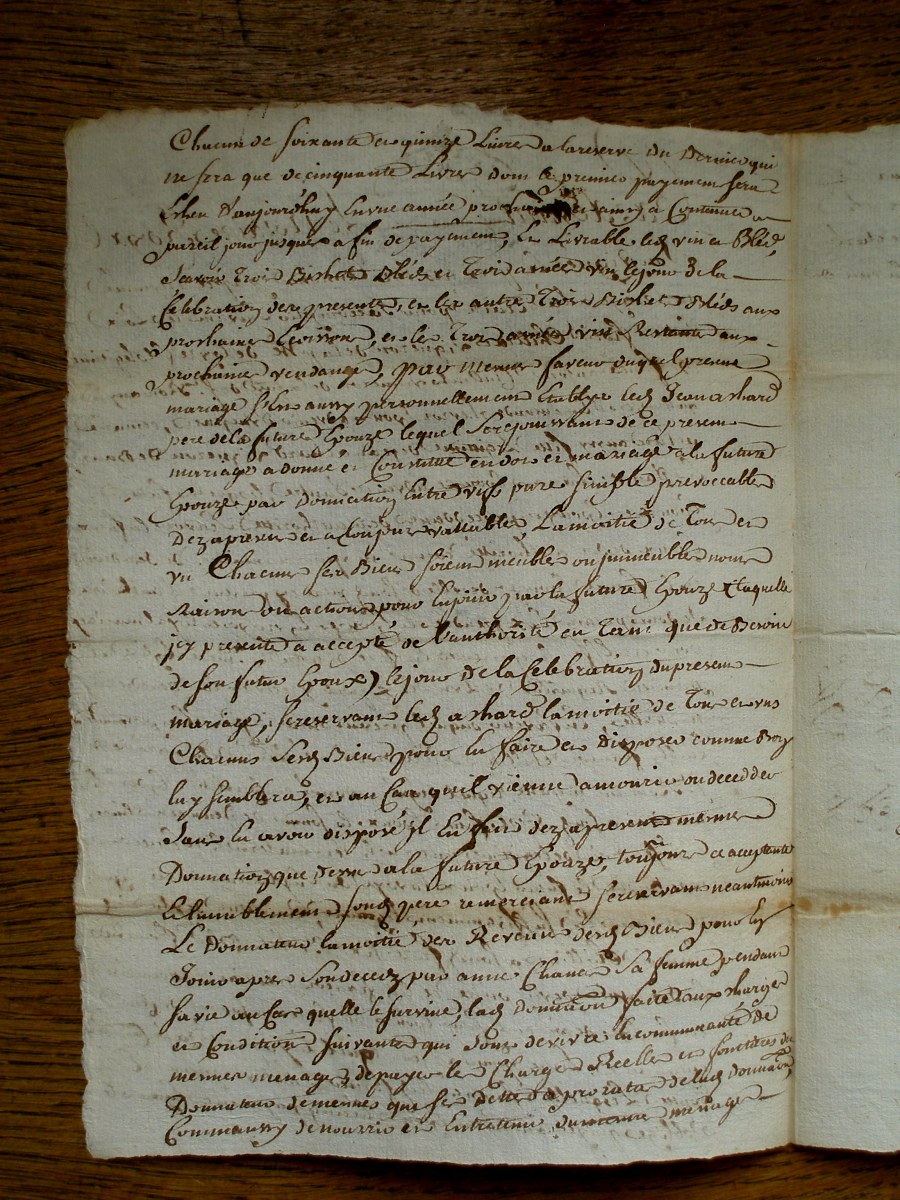 Chacun de soixante et quinze Livres a la reserve du dernier qui
ne sera que de cinquante Livres dont le premier payement sera
Echeu d'aujourdhuy En une année et ainsy a Continuer a
pareil jour jusques a fin de payement, Et Livrable led vin et Bled,
Scavoir Trois Bichet Bled et Trois année vin le jour de la
Celebration des presente, et les autre Trois Bichet Bleds aux
prochaine moisson, et les Trois année vin Restante aux
prochaine vendange, par mesme faveur duquel present
mariage s'Est aussy personnellement Etably led Jean
pere de la future Epouze lequel se rejouissant de ce present
mariage a donné et Constitué en dot et mariage a la future
Epouze par donnation Entre vifs pure simple jrevoccable
Dez a present et a toujour vallable, La moitié de Tout et
un Chacuns ses Bien soient meuble ou jmmeuble noms
Raison ou action pour En jouir par la future Epouze (laquelle
jcy presente a accepté de l'authorité en Terme que de Devoir
de son futur Epoux) le jour de la Celebration du present
mariage, se reservant led la moitié de Tout et uns
Chacuns Sesd Bien pour En faire et disposer comme Bon
luy semblera, et au Cas quil vienne a mourir ou deceder
Sans En avoir disposé jl En fait dez a present mesme
Donnation que dessu a la future Epouze, toujours acceptante
Et humblement sond pere remerciant se reservant neantmoins
Le Donnateur la moitié des Revenus desd Bien pour En
Jouir apres son decedz par anne Sa femme pendant
sa vie au Cas quelle le survive, lad donna͞on faite aux charge
et Condition suivante qui sont de vivre En communauté de
mesme menage, de payer les Charge Reelle et foncieres du
Donnateur de mesme que ses Dette a pro rata de lad donna͞on,
Comme aussy de nourrir et Entretenir du mesme menage